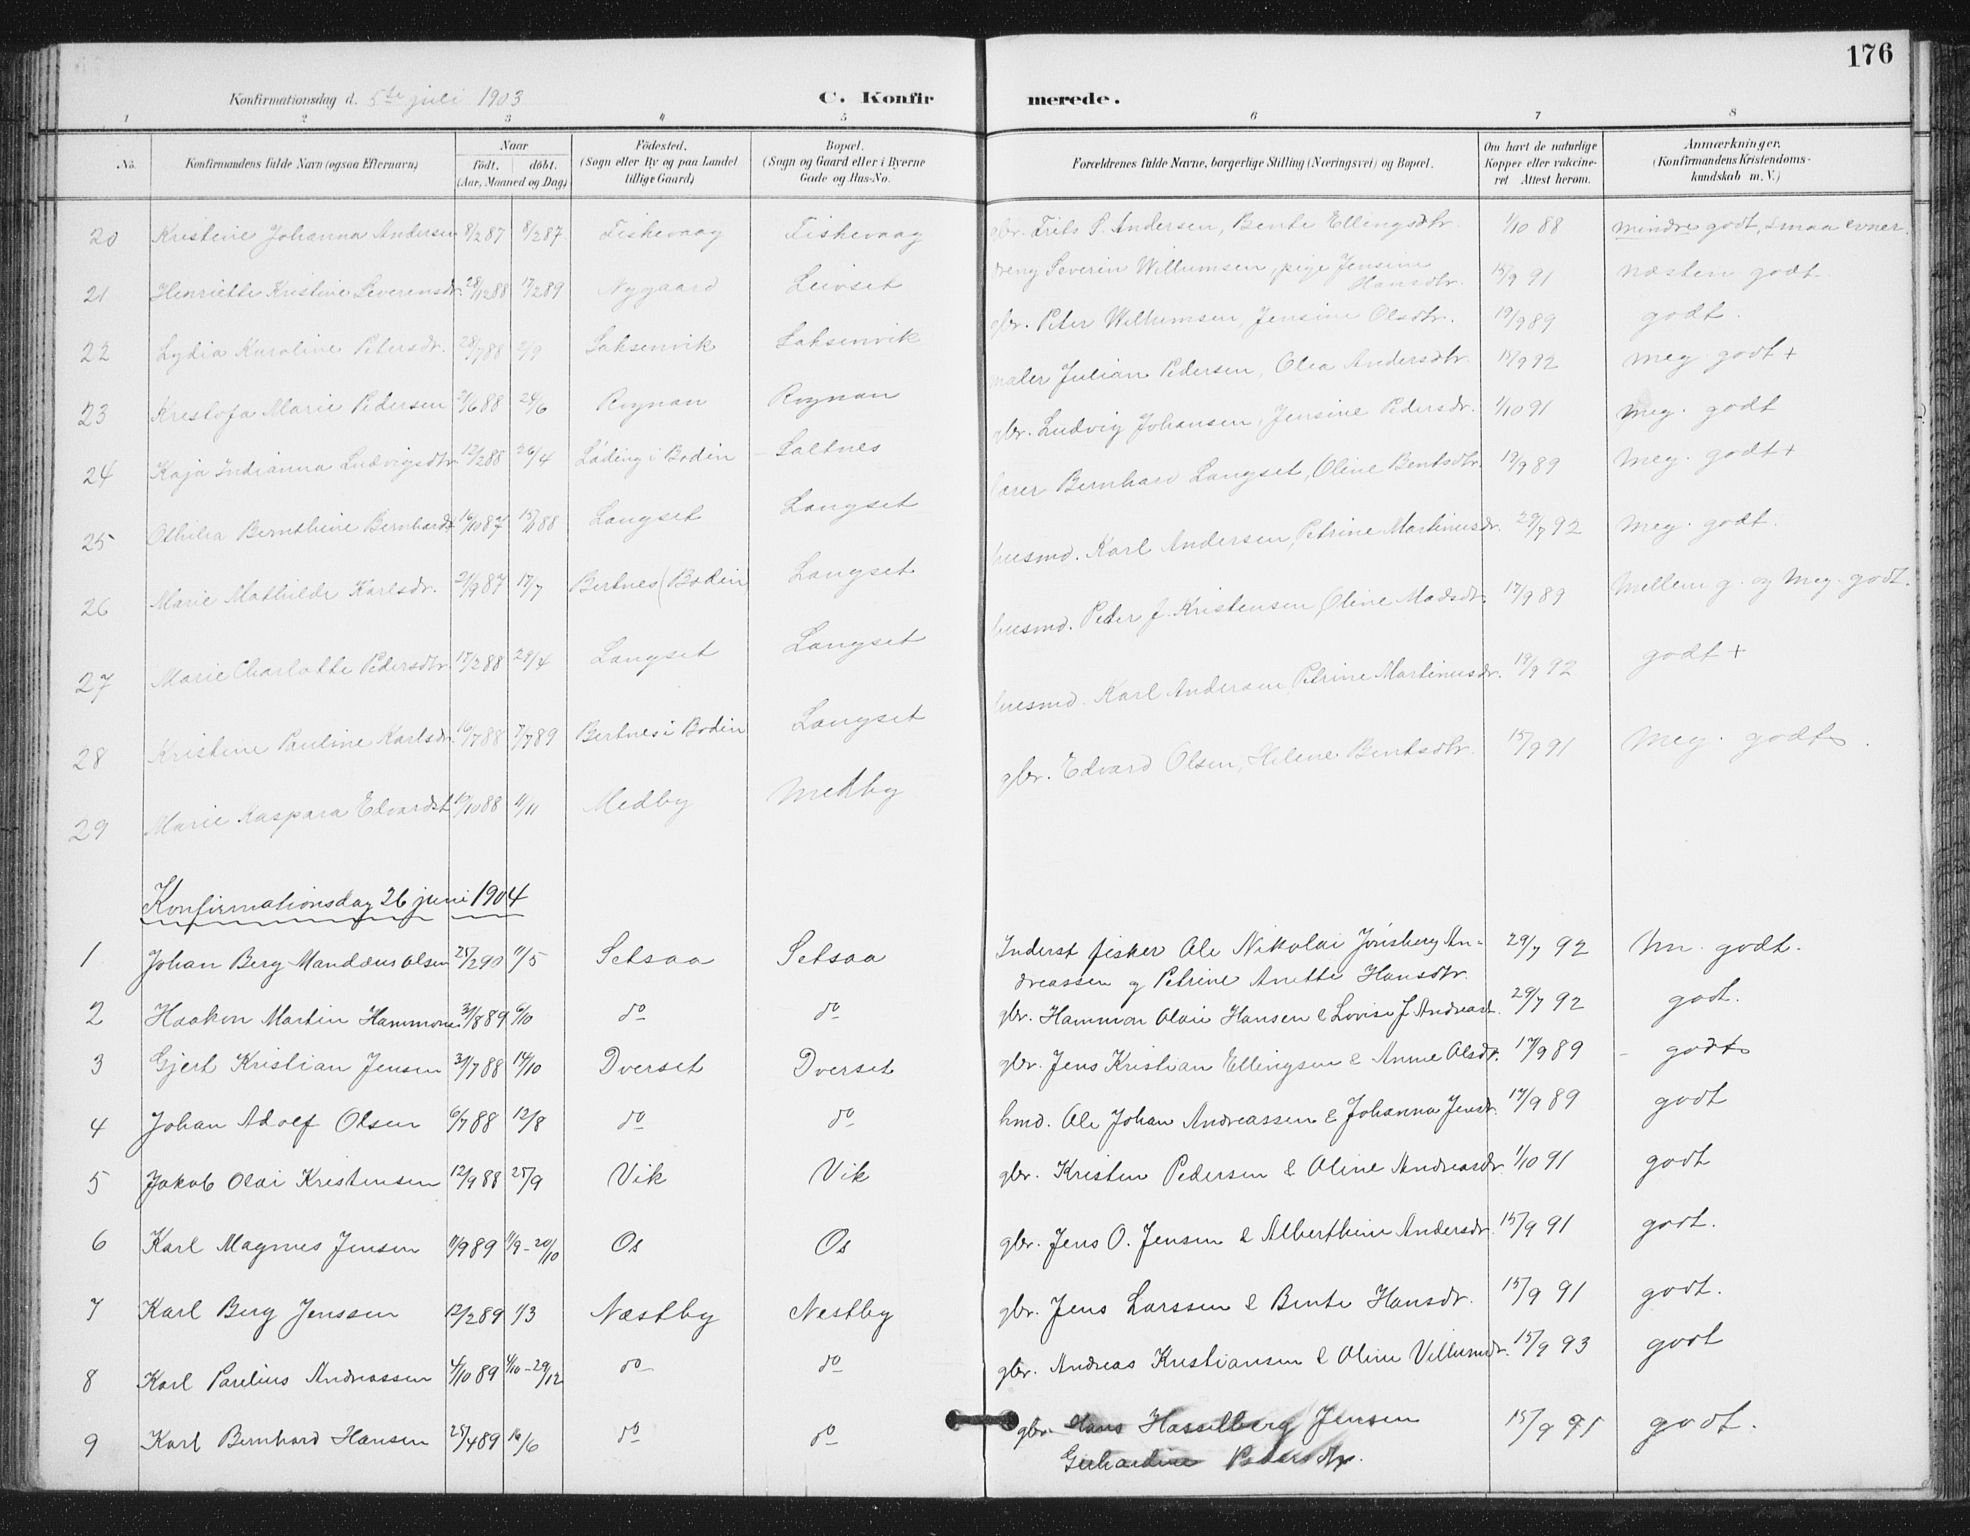 176
Konfirmationsdag d. 5te juli 1903 C. Konfirmerede.
1 2 3 4 5 6 7 8
No. Konfirmandens fulde Navn (ogsaa Efternavn) Naar födt. döbt. (Aar, Maaned og Dag) Födested. (Sogn eller By og paa Landet tillige Gaard) Bopæl. (Sogn og Gaard eller i Byerne Gade og Hus-No. Forældrenes fulde Navne, borgerlige Stilling (Næringsvei) og Bopæl. Om havt de naturlige Kopper eller vakcineret Attest herom. Anmærkninger. (Konfirmandens Kristendomskundskab m. V.)
20 Kristine Johanna Andersen 8/2 87 8/2 87 Fiskevaag Fiskevaag gbr. Frits P. Andersen, Bente Ellingsdtr. 1/10 88 mindre godt, smaa evner.
21 Henriette Kristine Severensdr. 28/12 88 17/2 89 Nygaard Leivset dreng Severin Willumsen, pige Jensine Hansdtr. 15/9 91 næsten godt
22 Lydia Karoline Petersdr. 28/7 88 2/9 Saksenvik Saksenvik gbr. Peter Willumsen, Jensine Olsdtr. 19/9 89 godt.
23 Kristofa Marie Pedersen 24/6 Rognan Rognan maler Julian Pedersen, Olea Andersdtr. 15/9 92 meg godt +
24 Kaja Indianna Ludvigsdtr. 12/2 88 26/4 Löding i Bodin Saltnes gbr. Ludvig Johansen, Jensine Pedersdr. 1/10 91 meg. godt
25 Othilia Bernthine Bernhardt 16/10 87 15/1 88 Langset Langset lærer Bernhard Langset, Oline Bentsdtr. 19/9 89 meg. godt +
26 Marie Mathilde Karlsdr. 2/9 87 17/7 Bertnes (Bodin) Langset husmd. Karl Andersen, Petrine Martinusdr. 29/7 92 meg. godt.
27 Marie Charlotte Pedersdtr. 17/2 88 29/4 Langset Langset husmd. Peder J. Kristensen, Oline Madsdtr. 17/9 89 mellem g. og meg. godt.
28 Kristine Pauline Karlsdr. 16/7 88 7/7 89 Bertnes i Bodin Langset husmd. Karl Andersen, Petrine Martinusdr. 19/9 92 godt +
29 Marie Kaspara Edvardsdt. 11/11 Medby Medby gbr. Edvard Olsen, Helene Bentsdtr. 15/9 91 meg. godt
Konfirmationsdag 26 juni 1904
1 Johan Berg Manddeus Olsen 25/2 90 11/5 Setsaa Setsaa Inderst fisker Ole Nikolai Jönsberg Andreassen g Petrine Anette Hansdtr. 29/7 92 m. godt.
2 Haakon Martin Hammons. 31/8 89 6/10 do do gbr. Hammon Olai Hansen & Lovise J Andreasd. 29/7 92 godt.
3 Gjert Kristian Jensen 31/7 88 14/10 Dverset Dverset gbr. Jens Kristian Ellingsen & Anne Olsdr. 17/9 89 godt
4 Johan Adolf Olsen 6/7 88 12/8 do do hmd. Ole Johan Andreassen & Johanna Jensdr. 17/9 89 godt
5 Jakob Olai Kristensen 12/9 88 25/9 Vik Vik gbr. Kristen Pedersen & Oline Andreasdr. 1/10 91 godt
6 Karl Magnus Jensen 11/9 89 11/9 - 20/10 Os Os gbr. Jens O. Jensen & Alberthine Andersdr. 15/9 91 godt.
7 Karl Berg Jenssen 12/2 89 1/3 Næstby Nestby gbr. Jens Larssen & Bente Hansdr. 15/9 91 godt.
8 Karl Parelius Andreassen 4/10 89 4/10 - 29/12 do do gbr. Andreas Kristiansen & Oline Villumdr. 15/9 93 godt
9 Karl Bernhard Hansen 25/4 89 16/6 do do gbr. Hans Hasselberg Jensen Gerhardine Pedersdtr. 15/9 91 godt.